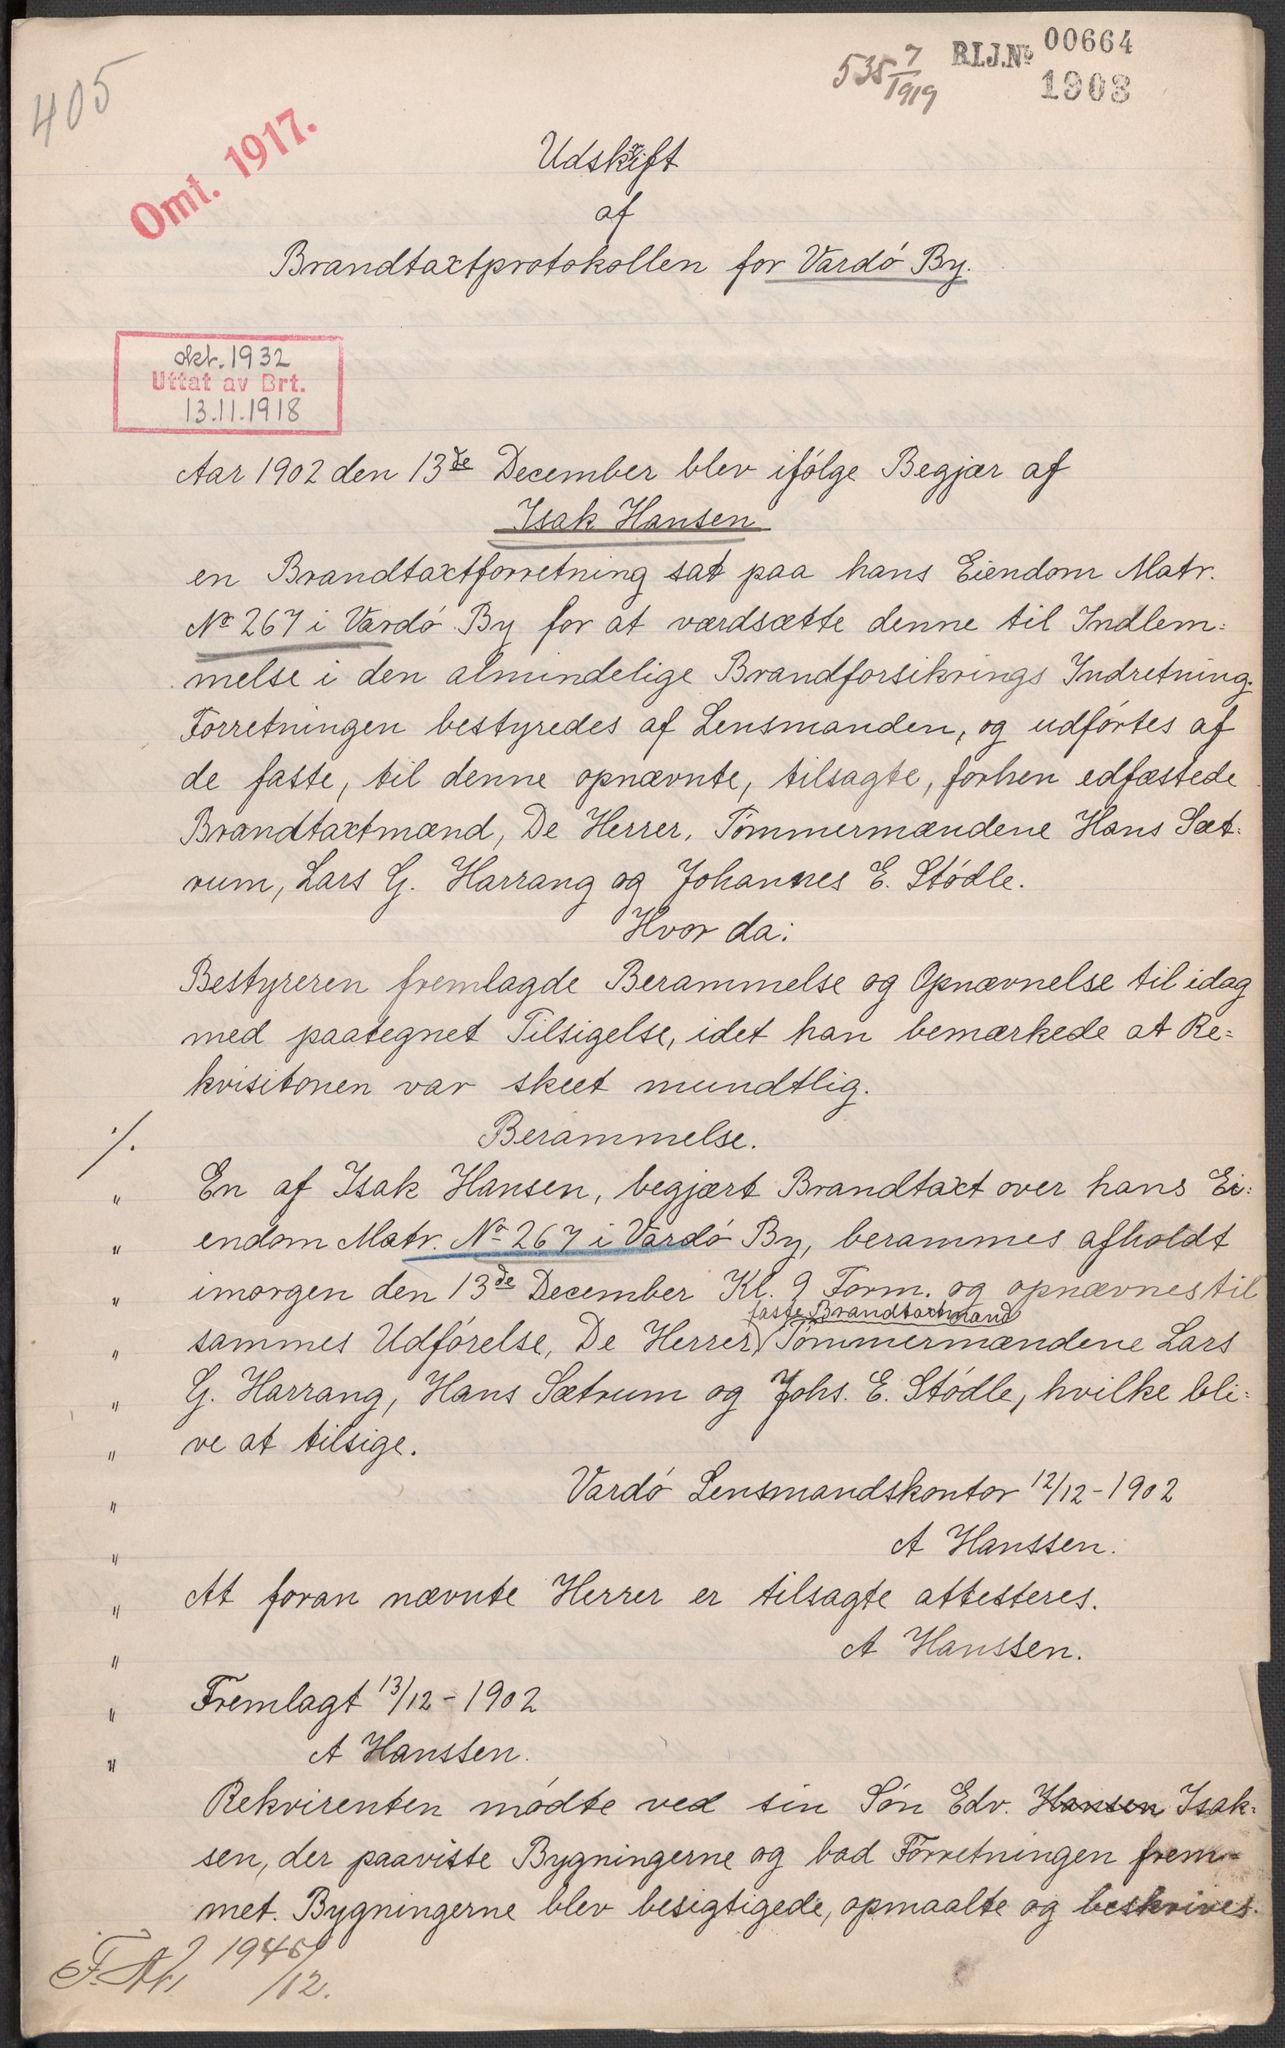 405
535 7/1919
R.I.J.No 00664
1903
Omt. 1917.
Udskrift
af
Brandtaxtprotokollen for Vardó By.
okt. 1932
Uttat av Brt.
13.11.1918
Aar 1902 den 13de December blev ifólge Begjær af
Isak Hansen
en Brandtaxtforretning sat paa hans Eiendom Matr.
No 267 i Vardó By for at værdsætte denne til Indlem=
melse i den almindelige Brandforsikrings Indretning.
Forretningen bestyredes af Lensmanden, og udfórtes af
de faste, til denne opnævnte, tilsagte, forhen edfæstede
Brandtaxtmænd, De Herrer, Tómmermændene Hans Sæt=
rum, Lars G. Harrang og Johannes E. Stódle.
Hvor da:
Bestyreren fremlagde Berammelse og Opnævnelse til idag
med paategnet Tilsigelse, idet han bemærkede at Re=
kvisitonen var skeet mundtlig.
./. Berammelse.
" En af Isak Hansen, begjært Brandtaxt over hans Ei=
" endom Matr. No 267 i Vardó By, berammes afholdt
" imorgen den 13de December Kl. 9 Form. og opnævnes til
faste Brandtaxtmænd
" sammes Udfórelse, De Herrer Tómmermændene Lars
" G. Harrang, Hans Sætrum og Johs. E. Stódle, hvilke bli=
" ve at tilsige.
" Vardó Lensmandskontor 12/12-1902
" A Hanssen.
" At foran nævnte Herrer er tilsagte attesteres.
" A Hanssen.
" Fremlagt 13/12-1902
" A Hanssen.
Rekvirenten módte ved sin Són Edv. Hansen Isak=
sen, der paaviste Bygningerne og bad Forretningen frem=
met. Bygningerne blev besigtigede, opmaalte og beskrives.
1945
/12.